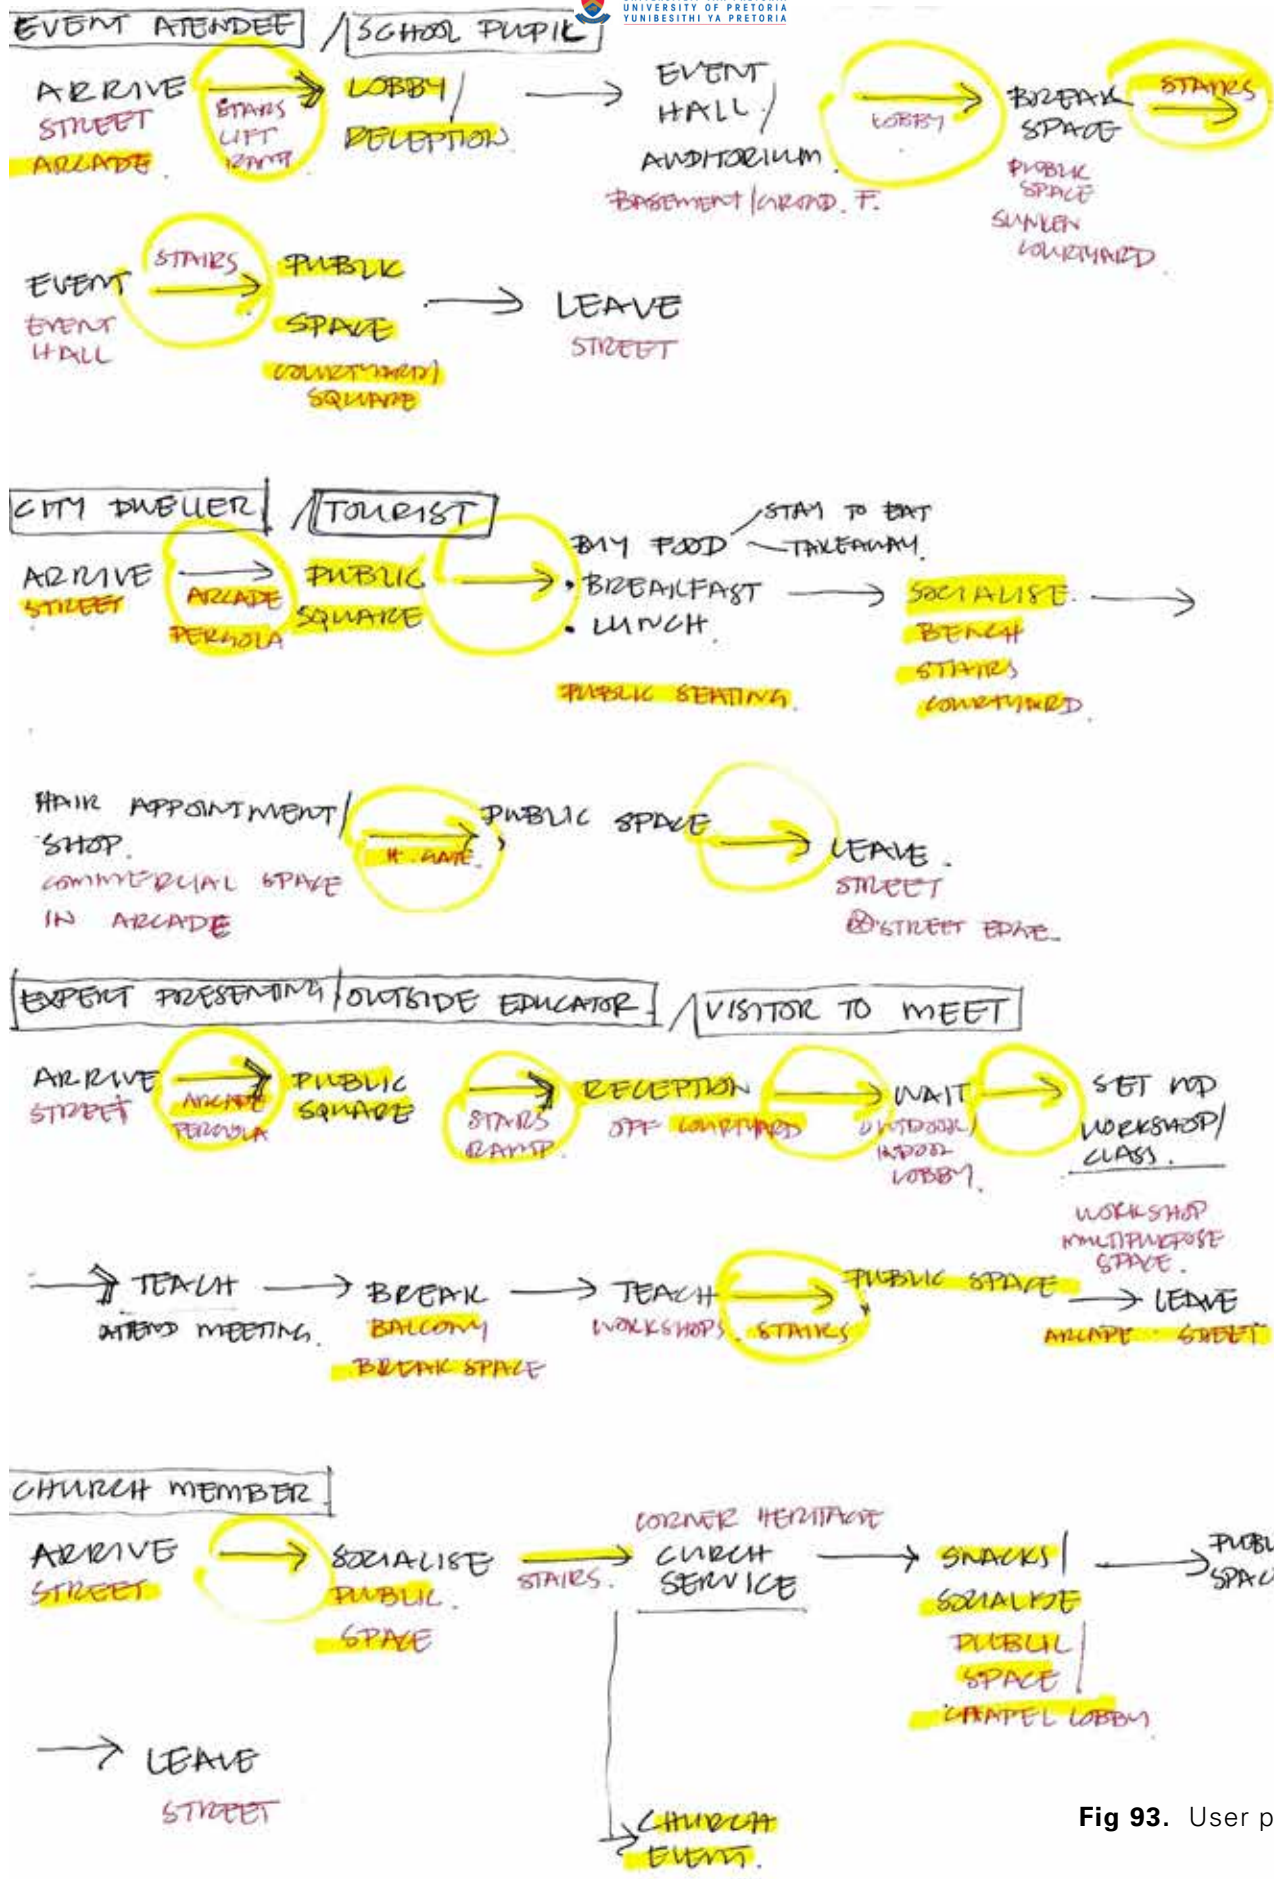 UNIVERSITY OF PRETORIA
YUNIBESITHI YA PRETORIA
EVENT ATENDEE / SCHOOL PUPIL
ARRIVE
STREET
ARCADE.
STAIRS
LIFT
RAMP.
LOBBY/
RECEPTION
EVENT
HALL/
AUDITORIUM.
BASEMENT/GROND. F.
LOBBY
BREAK
SPACE
PUBLIC
SPACE
SUNKEN
COURTYARD
STAIRS
EVENT
EVENT
HALL
STAIRS
PUBLIC
SPACE
COURTYARD/
SQUARE
LEAVE
STREET
CITY DWELLER / TOURIST
ARRIVE
STREET
ARCADE
PERGOLA
PUBLIC
SQUARE
BUY FOOD
STAY TO EAT
TAKEAWAY.
• BREAKFAST
• LUNCH.
PUBLIC SEATING.
SOCIALISE.
BENCH
STAIRS
COURTYARD.
HAIR APPOINTMENT/
SHOP.
COMMERCIAL SPACE
IN ARCADE
PUBLIC SPACE
LEAVE.
STREET
STREET EDGE.
EXPERT PRESENTING / OUTSIDE EDUCATOR / VISITOR TO MEET
ARRIVE
STREET
ARCADE
PERGOLA
PUBLIC
SQUARE
STAIRS
RAMP.
RECEPTION
OFF COURTYARD
WAIT
OUTDOOR/
INDOOR
LOBBY.
SET UP
WORKSHOP/
CLASS.
WORKSHOP
MULTIPURPOSE
SPACE.
TEACH
ATTEND MEETING.
BREAK
BALCONY
BREAK SPACE
TEACH
WORKSHOPS
STAIRS
PUBLIC SPACE
LEAVE
ARCADE STREET
CHURCH MEMBER
ARRIVE
STREET
SOCIALISE
PUBLIC.
SPACE
STAIRS.
CORNER HERITAGE
CURCH
SERVICE
SNACKS/
SOCIALIZE
PUBLIC
SPACE
CHAPEL LOBBY
PUBL
SPAC
LEAVE
STREET
CHURCH
EVENT.
Fig 93. User p